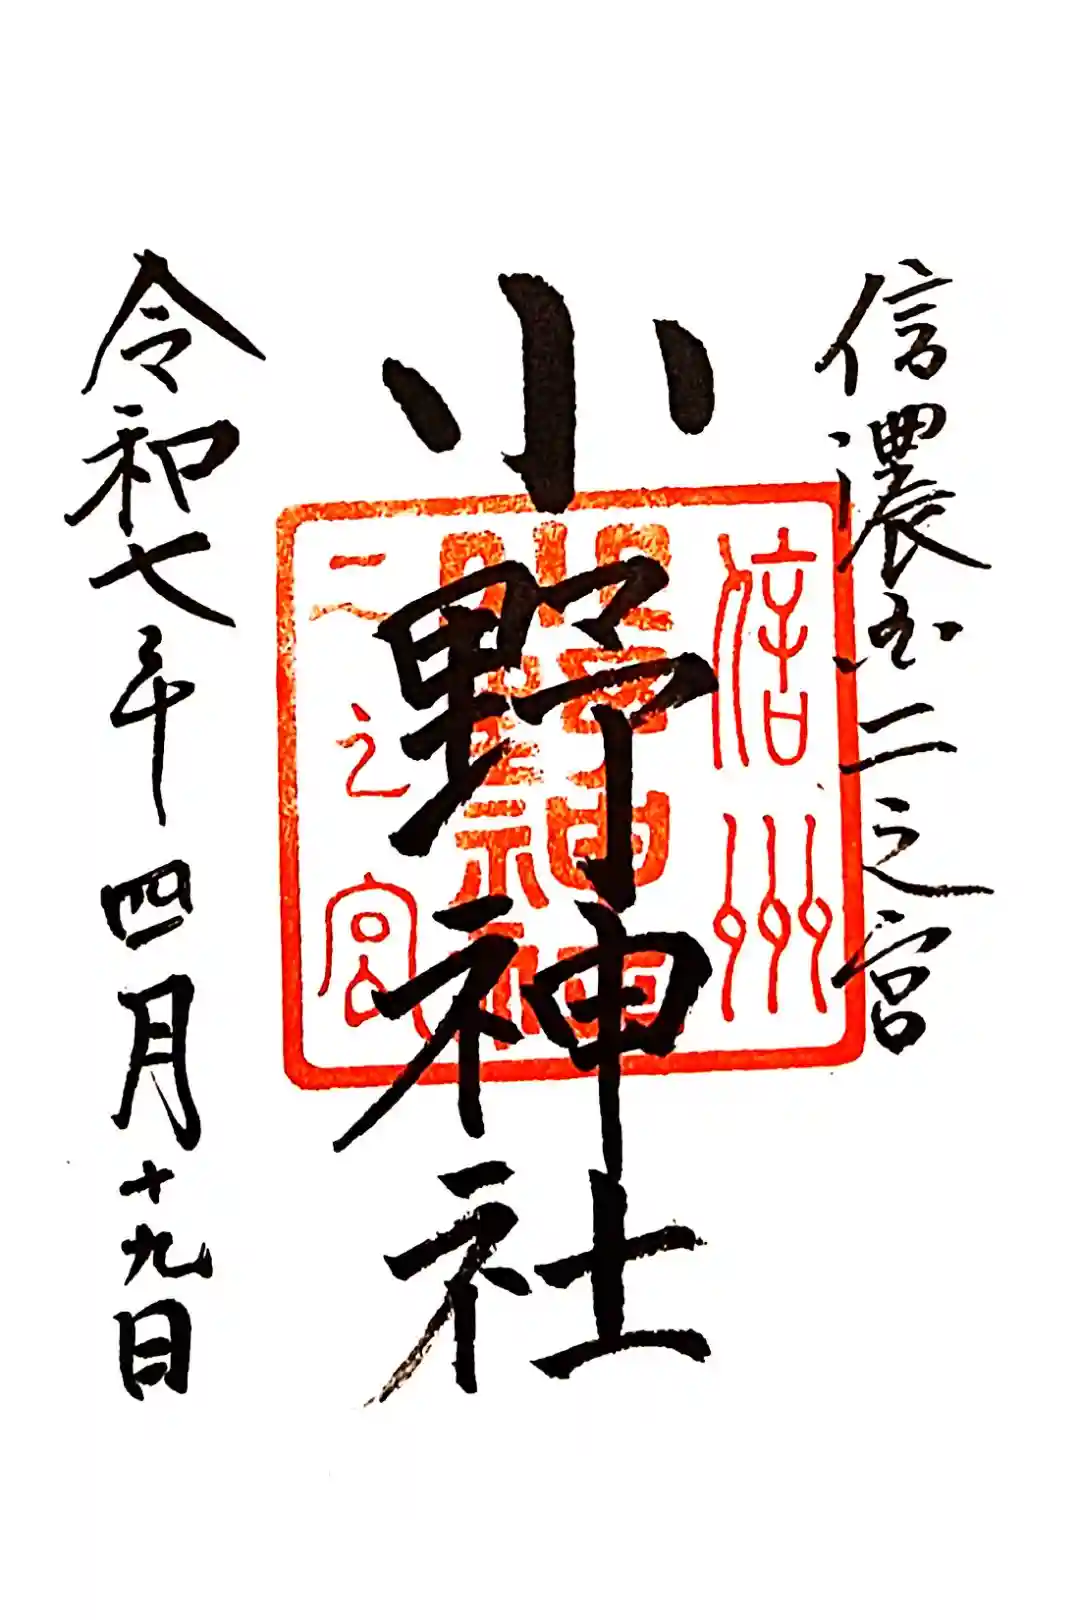 信濃国二之宮
小野神社
令和七年四月十九日
信州
小野神社
二之宮